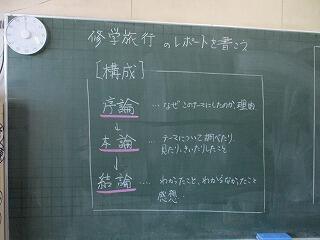 修学旅行のレポートを書こう
[構成]
序論 … なぜこのテーマにしたのか、理由
↓
本論 … テーマについて調べたり、
見たり、きいたりしたこと
↓
結論 … わかったこと、わからなかったこと
感想